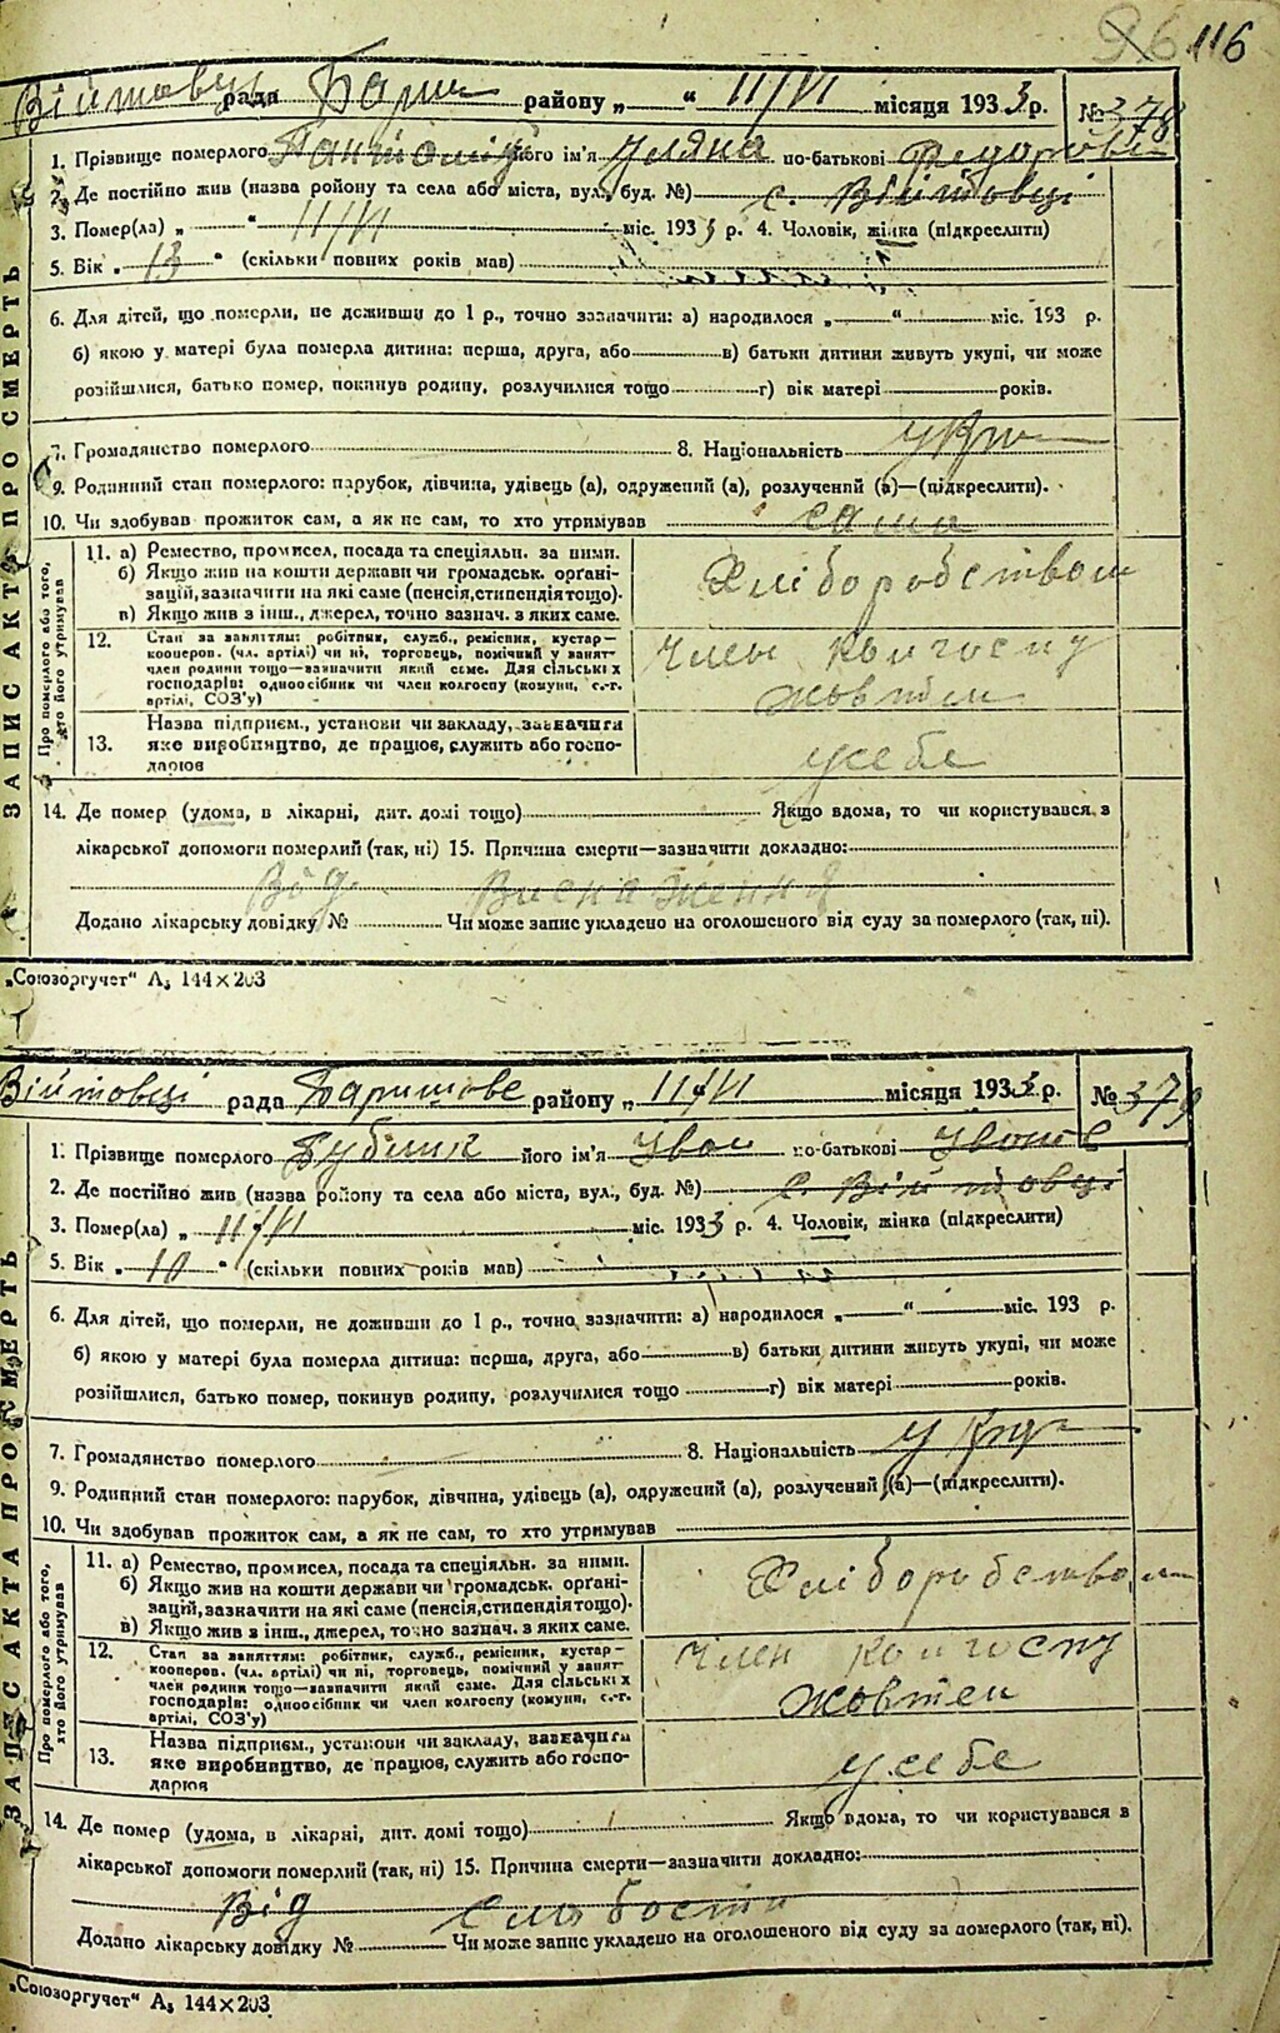 116
Війтовец рада Бари району „ “ 11/VI місяця 1933 р. № 378
1. Прізвище померлого його ім'я Уляна по-батькові
2. Де постійно жив (назва ройону та села або міста, вул., буд. №) с. Війтовці
3. Помер(ла) „ “ 11/VI міс. 1933 р. 4. Чоловік, жінка (підкреслити)
5. Вік „ 13 “ (скільки повних років мав)
6. Для дітей, що померли, не доживши до 1 р., точно зазначити: а) народилося „ “ міс. 193 р.
б) якою у матері була померла дитина: перша, друга, або в) батьки дитини живуть укупі, чи може
розійшлися, батько помер, покинув родину, розлучилися тощо г) вік матері років.
7. Громадянство померлого 8. Національність укр
9. Родинний стан померлого: парубок, дівчина, удівець (а), одружений (а), розлучений (а)—(підкреслити).
10. Чи здобував прожиток сам, а як не сам, то хто утримував сама
ЗАПИС АКТА ПРО СМЕРТЬ
Про померлого або того, хто його утримував
11. а) Ремество, промисел, посада та спеціяльн. за ними.
б) Якщо жив на кошти держави чи громадськ. органі-
зацій, зазначити на які саме (пенсія, стипендія тощо).
в) Якщо жив з інш., джерел, точно зазнач. з яких саме.
Хліборобством
12. Стан за заняттям: робітник, служб., ремісник, кустар—
кооперов. (чл. артілі) чи ні, торговець, помічний у занят-
член родини тощо—зазначити який саме. Для сільських
господарів: одноосібник чи член колгоспу (комуни, с.-г.
артілі, СОЗ'у)
Член колгоспу
жовтен
13. Назва підприєм., установи чи закладу, зазначити
яке виробництво, де працює, служить або госпо-
дарює
у себе
14. Де помер (удома, в лікарні, дит. домі тощо) Якщо вдома, то чи користувався з
лікарської допомоги померлий (так, ні) 15. Причина смерти—зазначити докладно:
Від Виснаження
Додано лікарську довідку № Чи може запис укладено на оголошеного від суду за померлого (так, ні).
„Союзоргучет“ А5 144×203
Війтовці рада Баришове району „ 11/VI місяця 1933 р. № 379
1. Прізвище померлого Бублик його ім'я Іван по-батькові
2. Де постійно жив (назва ройону та села або міста, вул., буд. №) с. Війтовці
3. Помер(ла) „ 11/VI міс. 1933 р. 4. Чоловік, жінка (підкреслити)
5. Вік „ 10 “ (скільки повних років мав)
6. Для дітей, що померли, не доживши до 1 р., точно зазначити: а) народилося „ “ міс. 193 р.
б) якою у матері була померла дитина: перша, друга, або в) батьки дитини живуть укупі, чи може
розійшлися, батько помер, покинув родину, розлучилися тощо г) вік матері років.
7. Громадянство померлого 8. Національність укр
9. Родинний стан померлого: парубок, дівчина, удівець (а), одружений (а), розлучений (а)—(підкреслити).
10. Чи здобував прожиток сам, а як не сам, то хто утримував
ЗАПИС АКТА ПРО СМЕРТЬ
Про померлого або того, хто його утримував
11. а) Ремество, промисел, посада та спеціяльн. за ними.
б) Якщо жив на кошти держави чи громадськ. органі-
зацій, зазначити на які саме (пенсія, стипендія тощо).
в) Якщо жив з інш., джерел, точно зазнач. з яких саме.
Хліборобством
12. Стан за заняттям: робітник, служб., ремісник, кустар—
кооперов. (чл. артілі) чи ні, торговець, помічний у занят-
член родини тощо—зазначити який саме. Для сільських
господарів: одноосібник чи член колгоспу (комуни, с.-г.
артілі, СОЗ'у)
Член колгоспу
жовтен
13. Назва підприєм., установи чи закладу, зазначити
яке виробництво, де працює, служить або госпо-
дарює
у себе
14. Де помер (удома, в лікарні, дит. домі тощо) Якщо вдома, то чи користувався в
лікарської допомоги померлий (так, ні) 15. Причина смерти—зазначити докладно:
Від слабости
Додано лікарську довідку № Чи може запис укладено на оголошеного від суду за померлого (так, ні).
„Союзоргучет“ А5 144×203